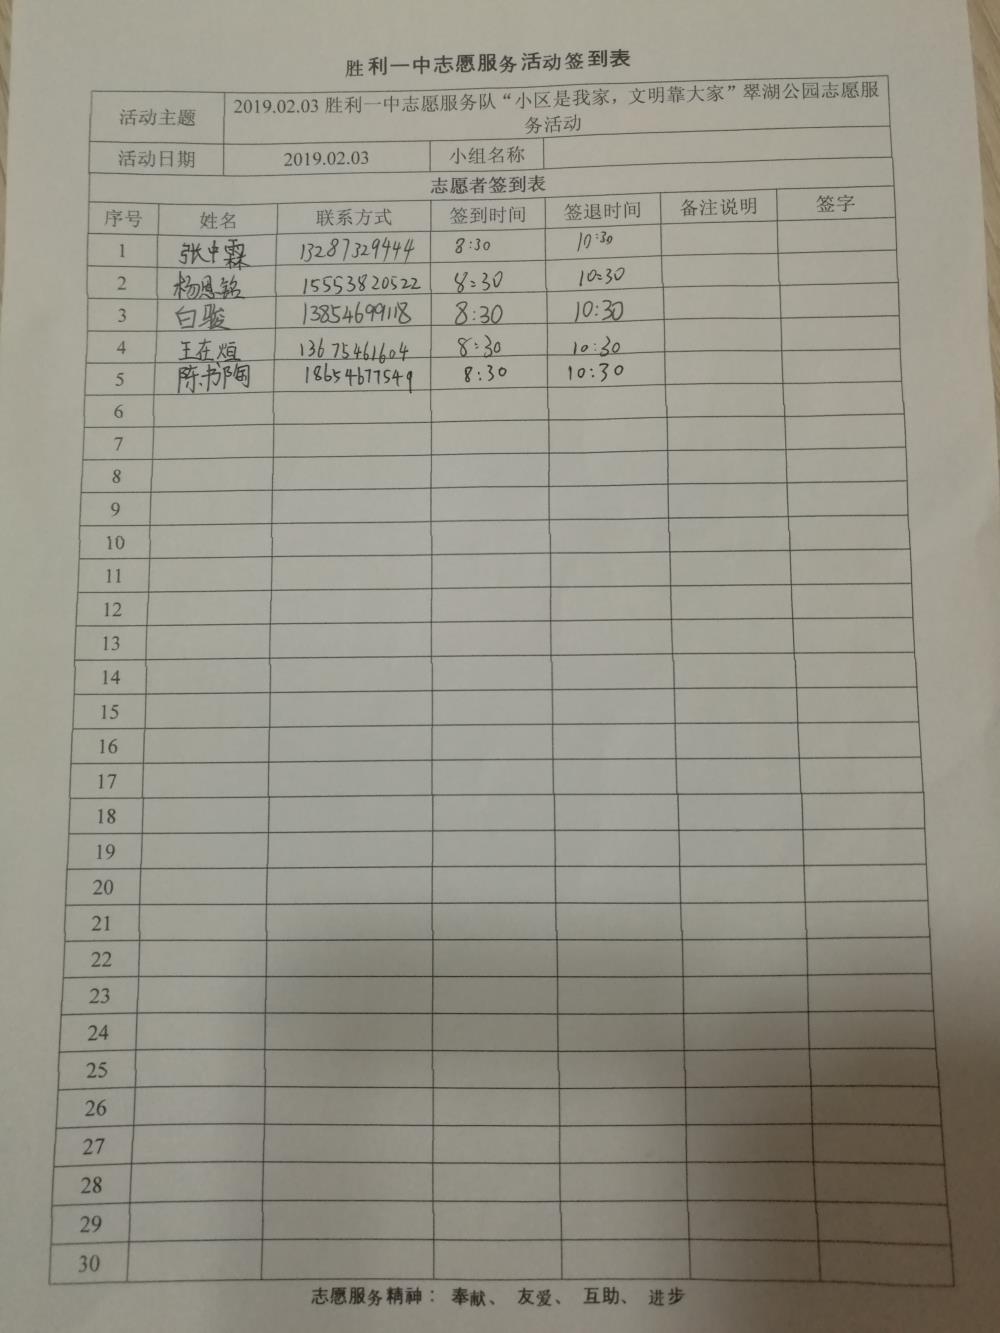 胜利一中志愿服务活动签到表
活动主题 2019.02.03 胜利一中志愿服务队“小区是我家，文明靠大家”翠湖公园志愿服
务活动
活动日期 2019.02.03 小组名称
志愿者签到表
序号 姓名 联系方式 签到时间 签退时间 备注说明 签字
1 张中霖 13287329444 8:30 10:30
2 杨恩铭 15553820522 8:30 10:30
3 白骏 13854699118 8:30 10:30
4 王在烜 13675461604 8:30 10:30
5 陈书陶 18654677549 8:30 10:30
6
7
8
9
10
11
12
13
14
15
16
17
18
19
20
21
22
23
24
25
26
27
28
29
30
志愿服务精神： 奉献、 友爱、 互助、 进步